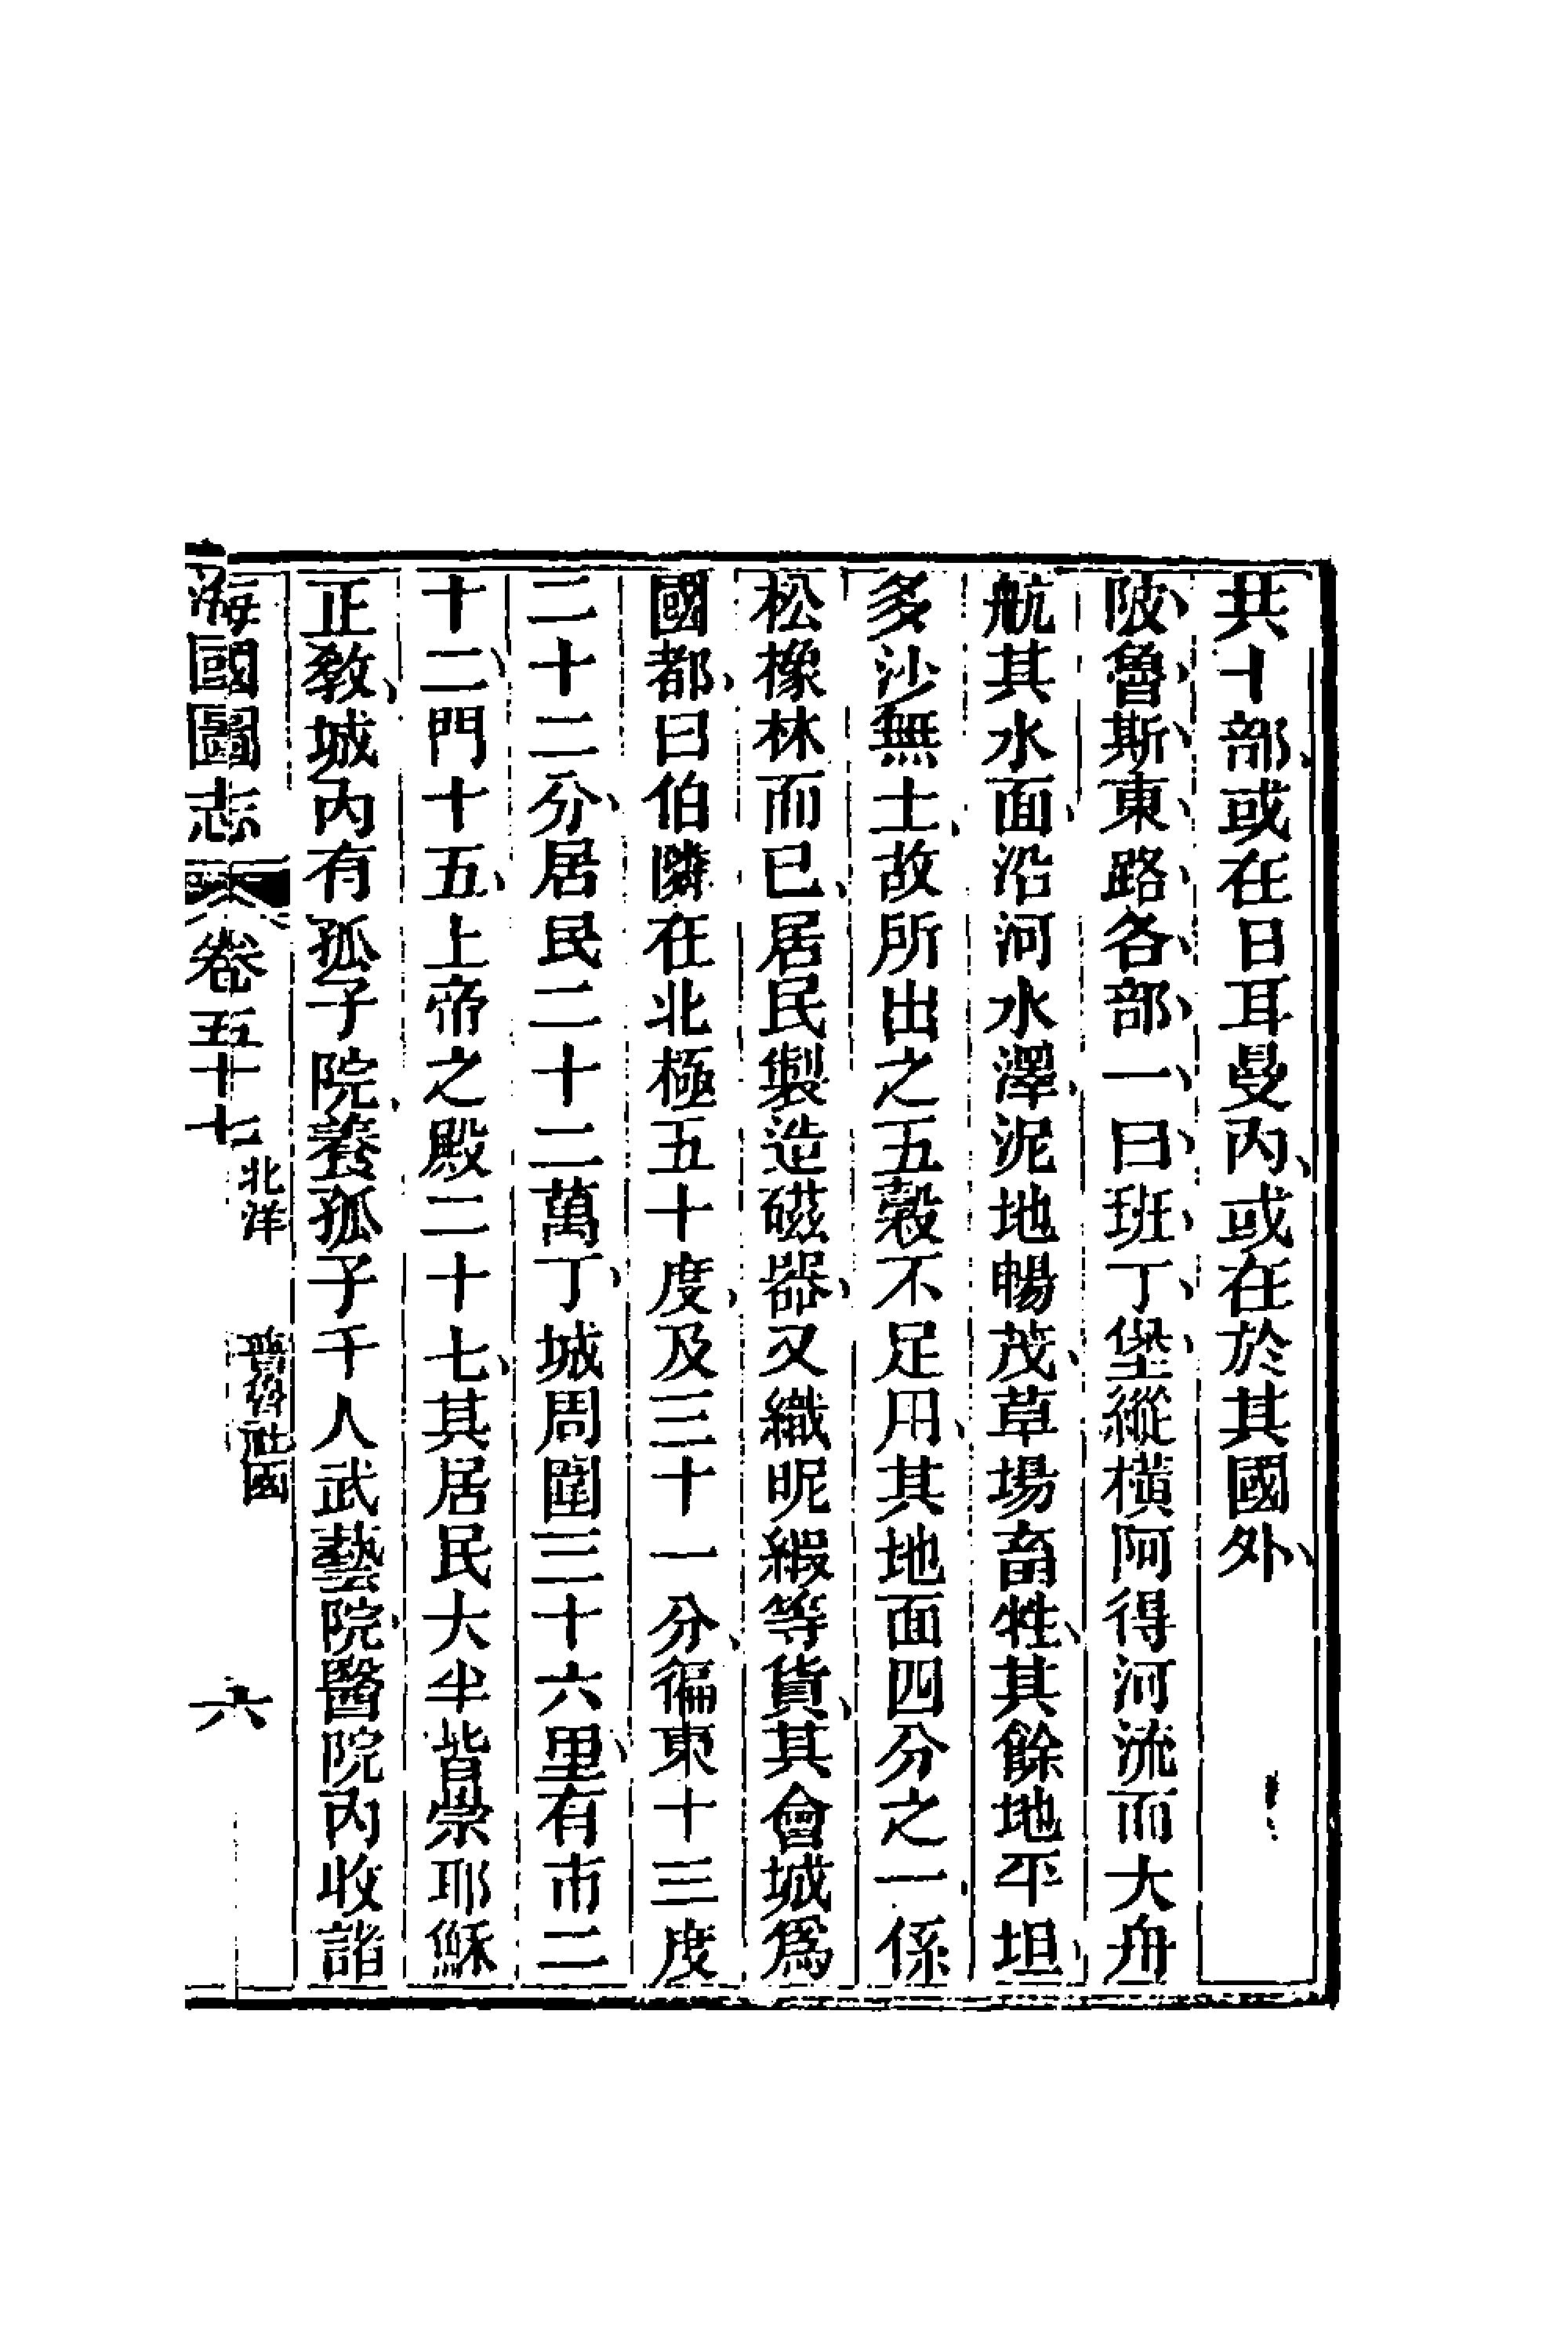 共十部或在日耳曼內或在於其國外
陂魯斯東路各部一曰班丁堡縱橫阿得河流而大舟
航其水面沿河水澤泥地暢茂草場畜牲其餘地平坦
多沙無土故所出之五穀不足用其地面四分之一係
松橡林而已居民製造磁器又織呢緞等貨其會城爲
國都曰伯隣在北極五十度及三十一分徧東十三度
二十二分居民二十二萬丁城周圍三十六里有市二
十二門十五上帝之殿二十七其居民大半皆崇耶穌
正教城內有孤子院養孤子千人武藝院醫院內收諸
海國圖志 卷五十七 北洋 普魯社國 六